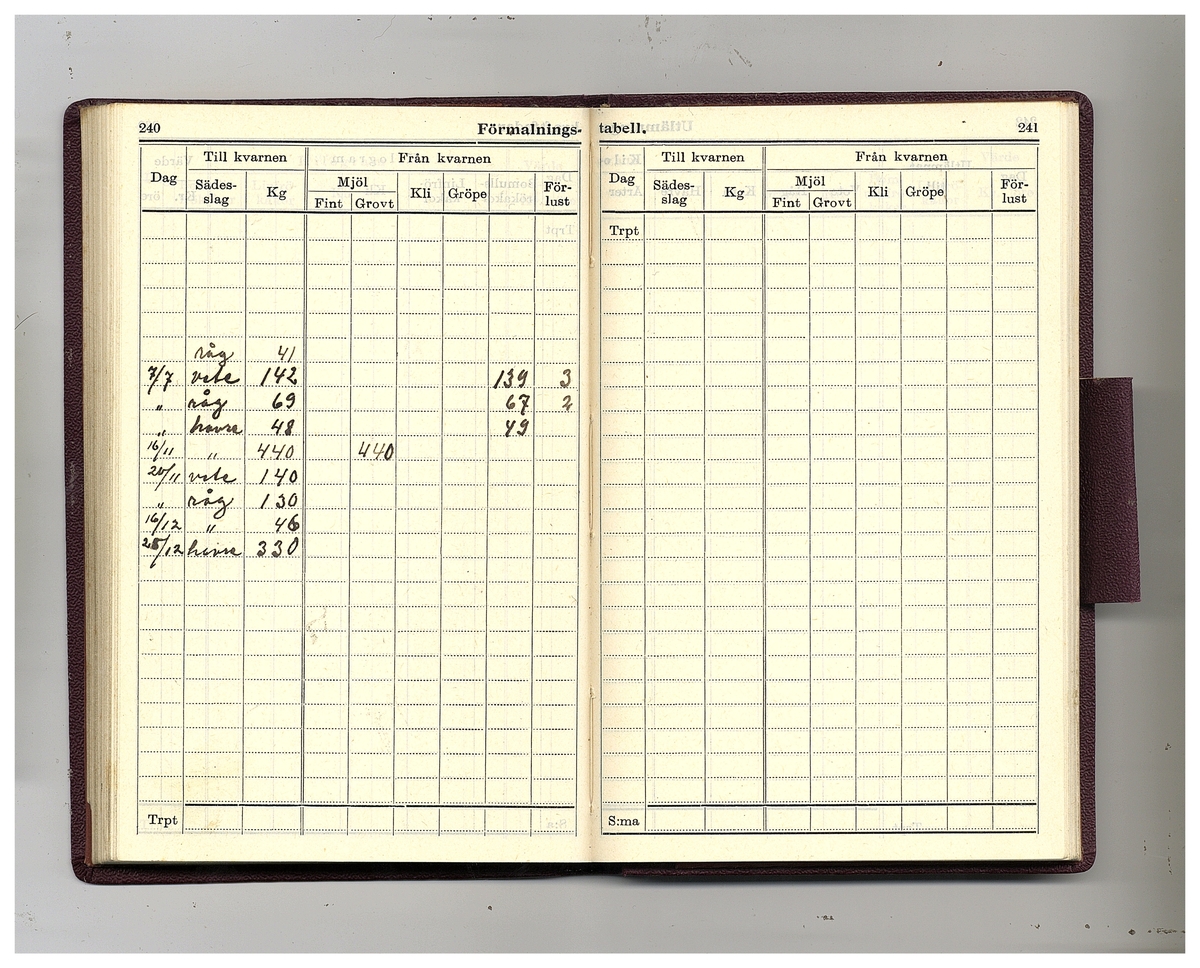 240 Förmalnings- tabell. 241
Till kvarnen Från kvarnen Till kvarnen Från kvarnen
Dag Sädes-slag Kg Mjöl Kli Gröpe För-lust Dag Sädes-slag Kg Mjöl Kli Gröpe För-lust
Fint Grovt Fint Grovt
Trpt
råg 41
7/7 vete 142 139 3
" råg 69 67 2
" havre 48 49
16/11 " 440 440
20/11 vete 140
" råg 130
16/12 " 46
28/12 havre 330
Trpt S:ma